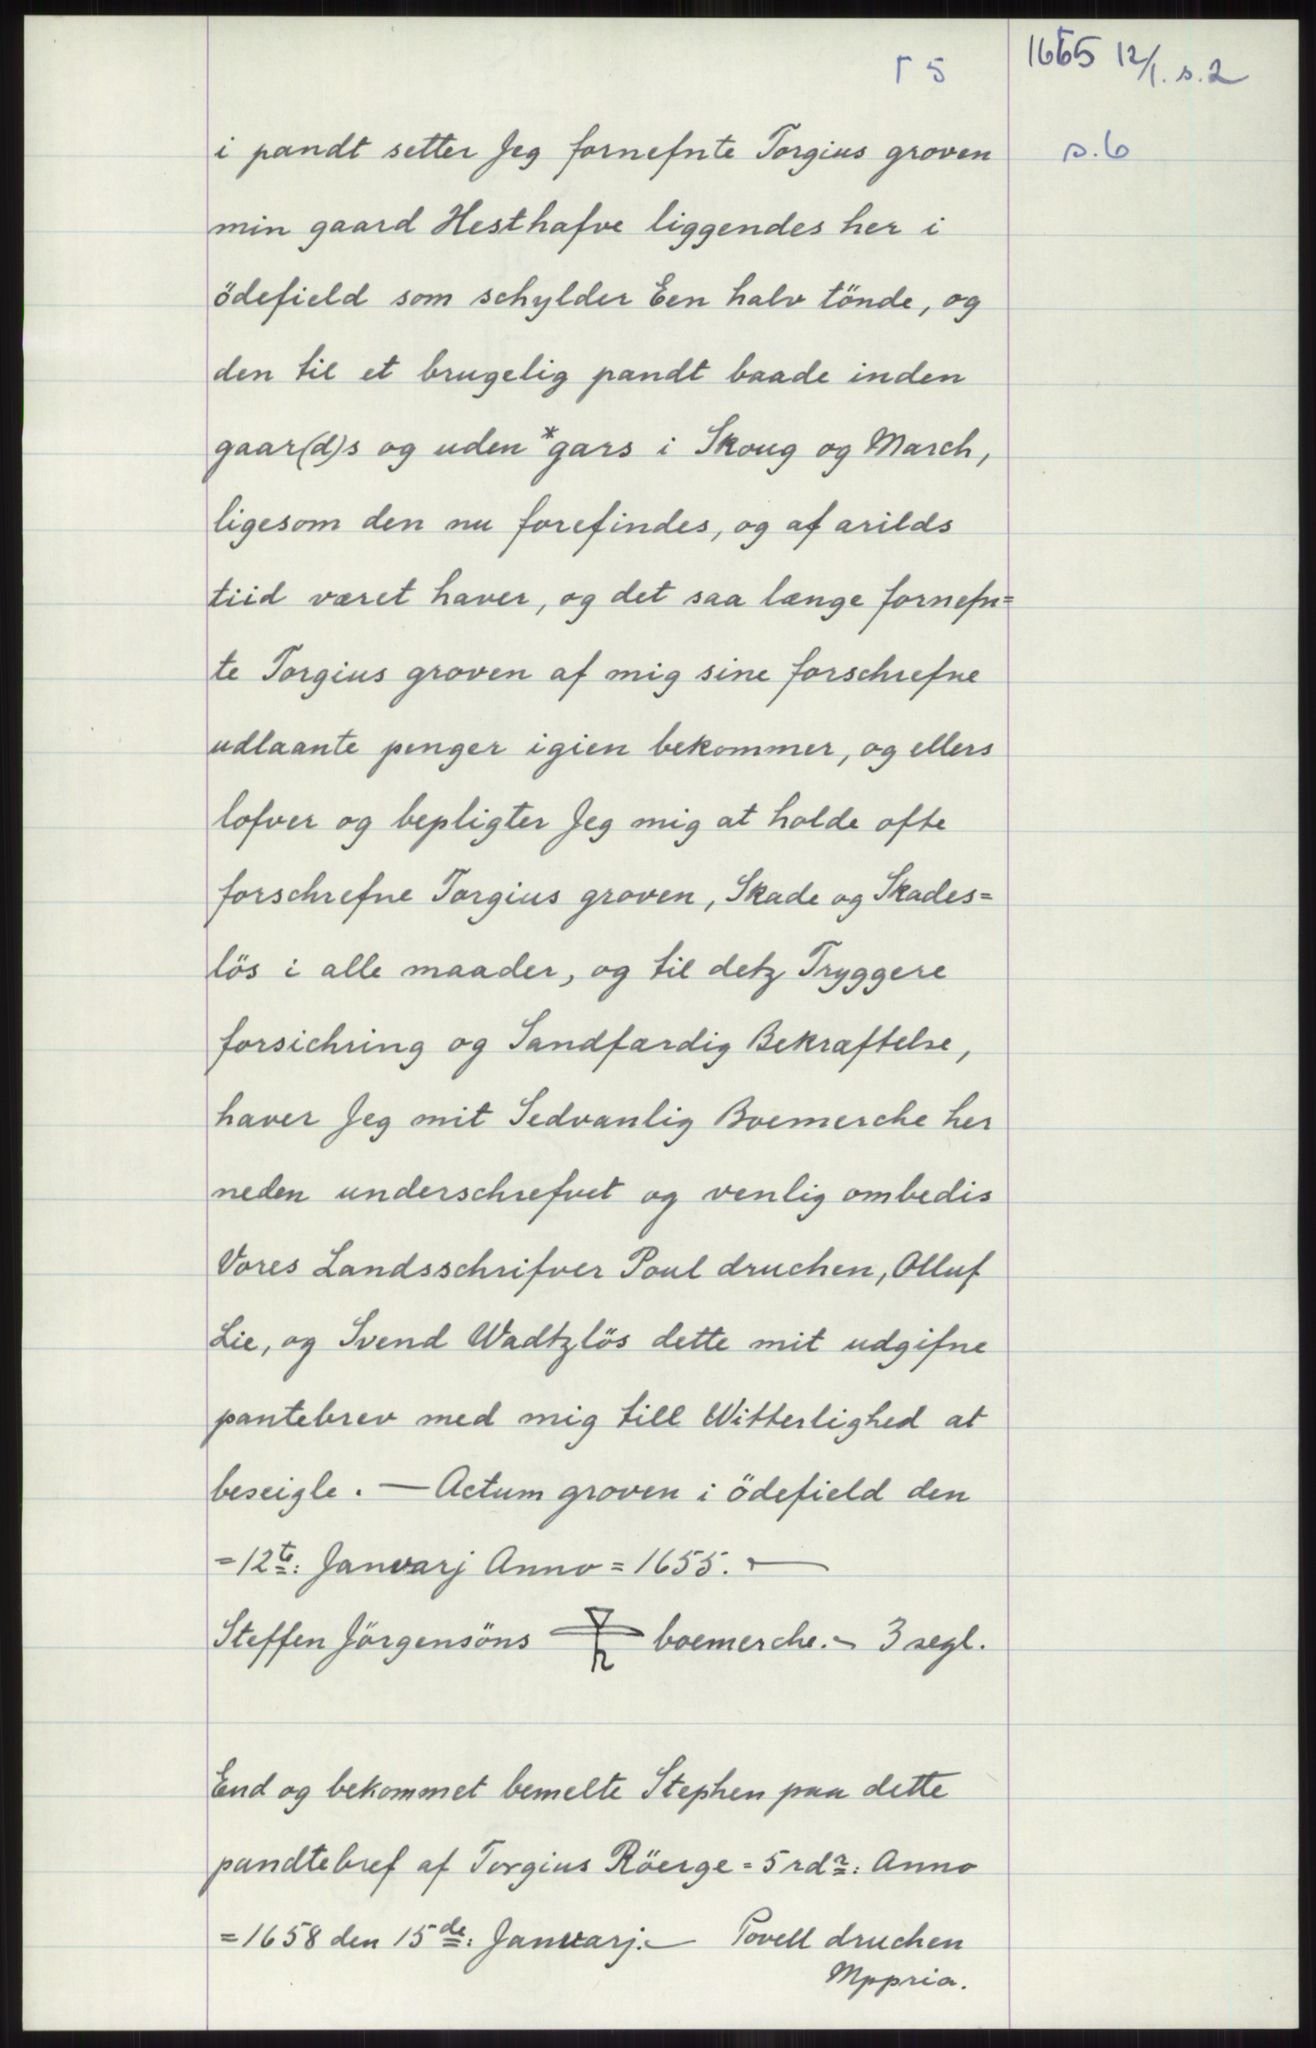 Γ 5
1655 12/1. s. 2
s. 6
i pandt setter Jeg fornefnte Torgius groven
min gaard Hesthafve liggendes her i
ödefield som schylder Een halv tönde, og
den til et brugelig pandt baade inden
gaar(d)s og uden *gars i Skoug og March,
ligesom den nu forefindes, og af arilds
tiid været haver, og det saa længe fornefn=
te Torgius groven af mig sine forschrefne
udlaante penger igien bekommer, og ellers
lofver og bepligter Jeg mig at holde ofte
forschrefne Torgius groven, Skade og Skades=
lös i alle maader, og til detz Tryggere
forsichring og Sandfærdig Bekræftelse,
haver Jeg mit Sedvanlig Boemerche her
neden underschrefvet og venlig ombedis
Vores Landsschrifver Poul druchen, Olluf
Lie, og Svend Wadtzlös dette mit udgifne
pantebrev med mig till Witterlighed at
beseigle. — Actum groven i ödefield den
=12te: Januarj Anno = 1655. —
Steffen Jörgensöns boemerche. ~ 3 segl.
End og bekommet bemelte Stephen paa dette
pandtebref af Torgius Röerge = 5 rdr: Anno
=1658 den 15de: Januarj. — Povell druchen
Mppria.